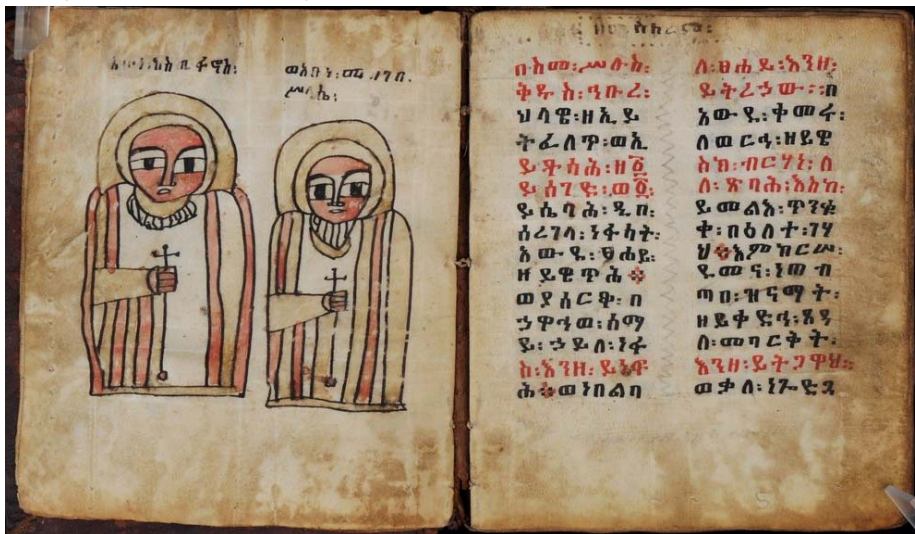 ወአቡነ፡
ሥላሴ፡
በስመ፡ሥሉስ፡
ቅዱስ፡ኅቡረ፡
ህላዌ፡ዘኢይ
ትፈለጥ፡ወኢ
ዘ፩
ይሰገዱ፡ወ፩፡
ይሴባሕ፡ዲበ፡
ሰረገላ፡ነፋሳት፡
አውዱ፡ፀሐይ፡
ዘይዌጥሕ፨
ወያሰርፁ፡በ
ኃዋኅወ፡ሰማ
ይ፡ኃይለ፡ነፋ
ስ፡እንዘ፡ይነፍ
ሕ፨ወነበልባ
ለ፡ፀሐይ፡እንዘ፡
ይትረኃው፡፡በ
አውዱ፡ቀመራ፡
ለወርኅ፡ዘይዌ
ስክ፡ብርሃነ፡ለ
ለ፡ጽባሕ፡እስከ፡
ይመልእ፡ጥንቁ
ቀ፡በዕለተ፡ገሃ
ህ፨እምከርሡ፡
ደመና፡ነጠብ
ጣበ፡ዝናማት፡
ዘይቀድሓ፡ጸዳ
ለ፡መባርቅት፡
እንዘ፡ይትጋዋህ፡፡
ወቃለ፡ነጐድጓ